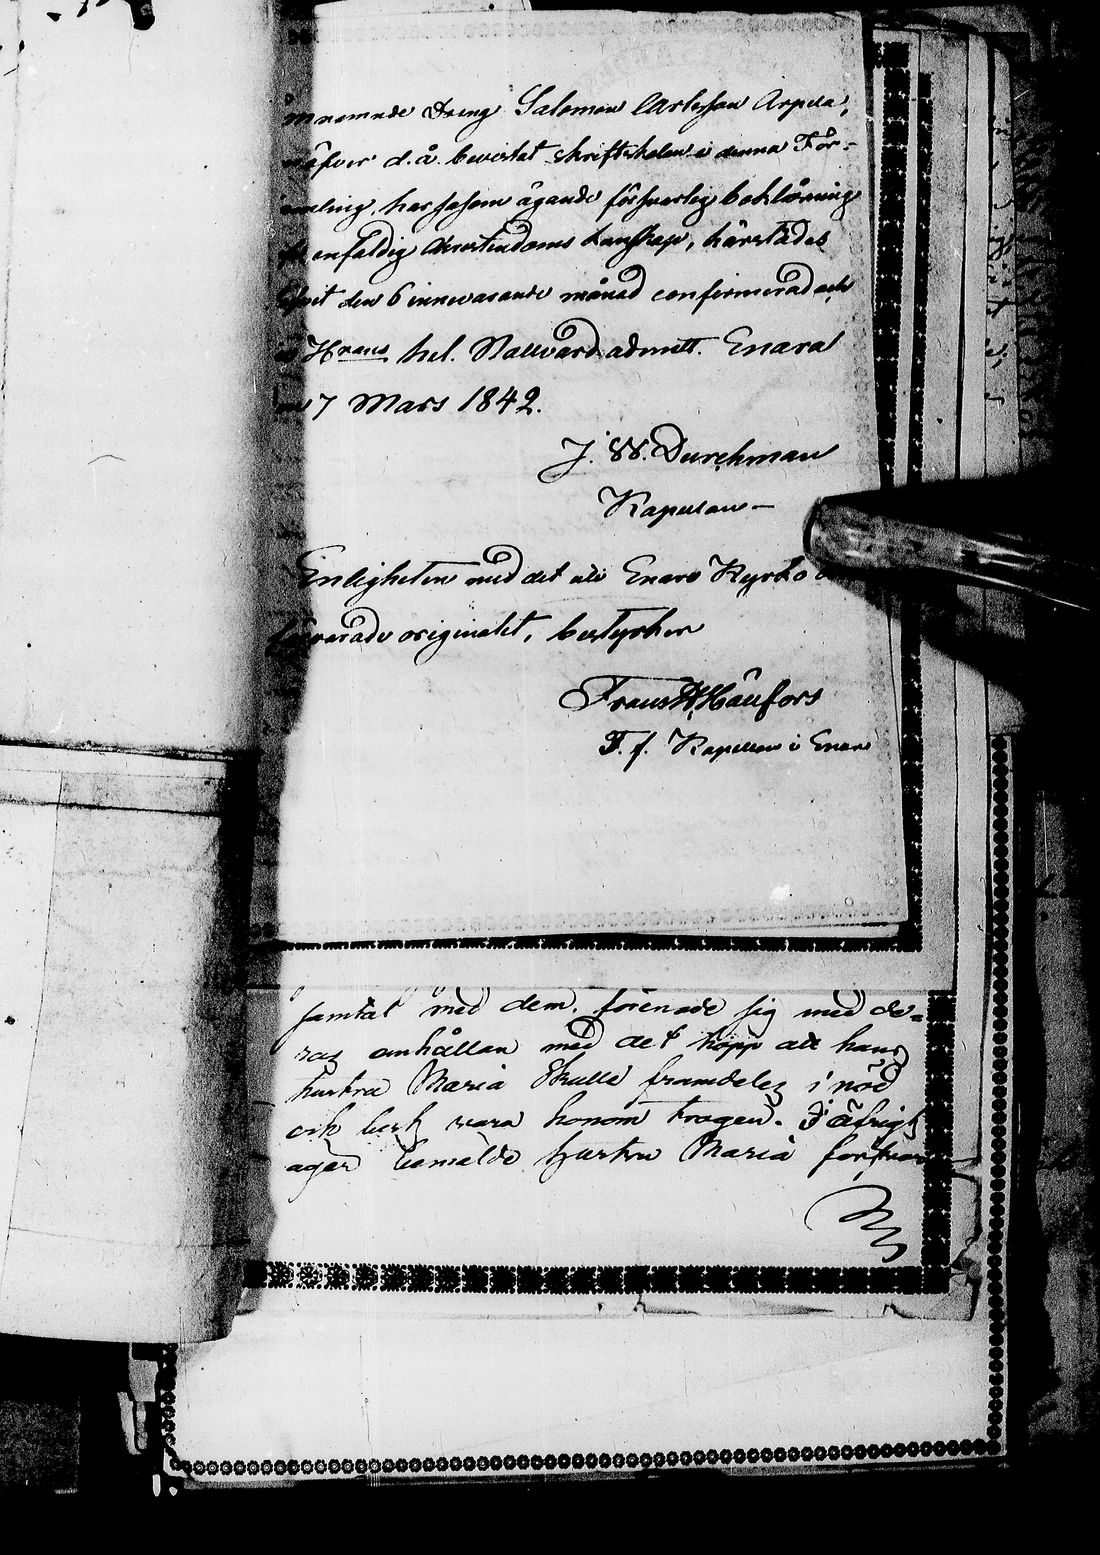 mnämnde Dreng Salomon Carlsson Arpela,
d. å. bevistat skriftskolan i denna För-
samling, har såsom ägande försvarlig boklärning
enfaldig Christendoms kunskap, härstädes
blifvit den 6 innevarande månad confirmerad och
Hrans hel. Nattvard admitt. Enara
den 7 Mars 1842.
J. W. Durchman
Kapellan
Enligheten med det uti Enare Kyrko
förvarade originalet, bestyrker
Frans W. Hänfors
T. f. Kapellan i Enare
samtal med dem, förenade sig med de=
ras anhållan med det hopp att hans
hustru Maria skulle framdeles i nöd
och lust vara honom trogen. I öfrigt
äger bemälde hustru Maria försvar